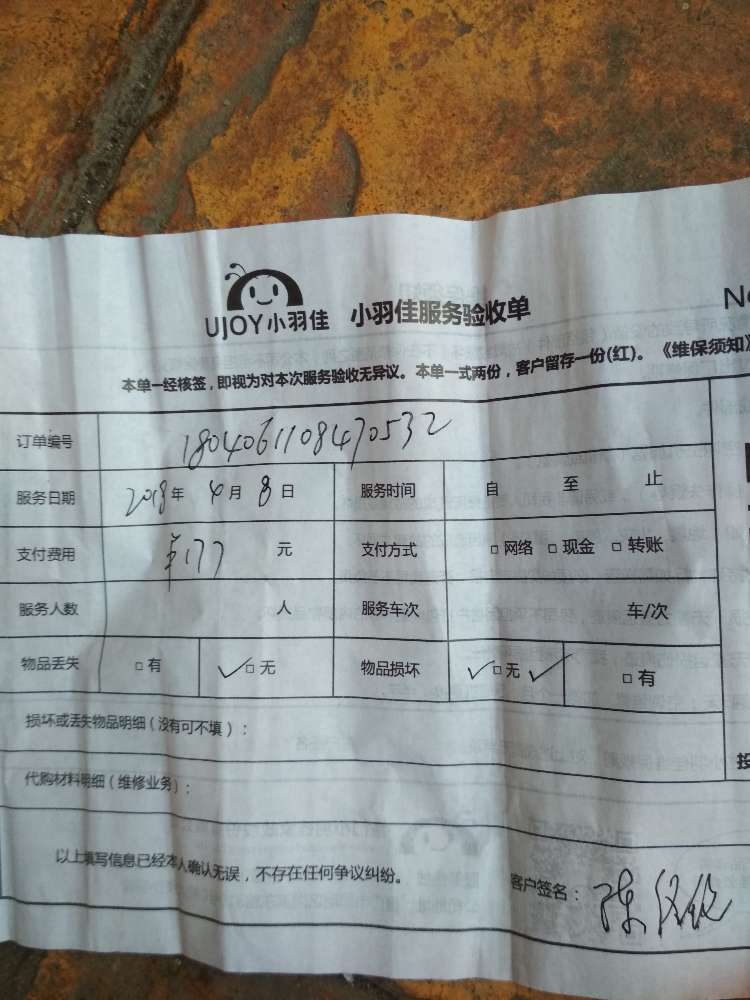 UJOY小羽佳 小羽佳服务验收单
N
本单一经核签，即视为对本次服务验收无异议。本单一式两份，客户留存一份(红)。《维保须知》
订单编号 1804061108470532
服务日期 2018年 4月 8日 服务时间 自 至 止
支付费用 ¥177 元 支付方式 □网络 □现金 □转账
服务人数 人 服务车次 车/次
物品丢失 □有 ✓□无 物品损坏 ✓□无✓ □有
损坏或丢失物品明细（没有可不填）：
代购材料明细（维修业务）：
投
以上填写信息已经本人确认无误，不存在任何争议纠纷。 客户签名：陈